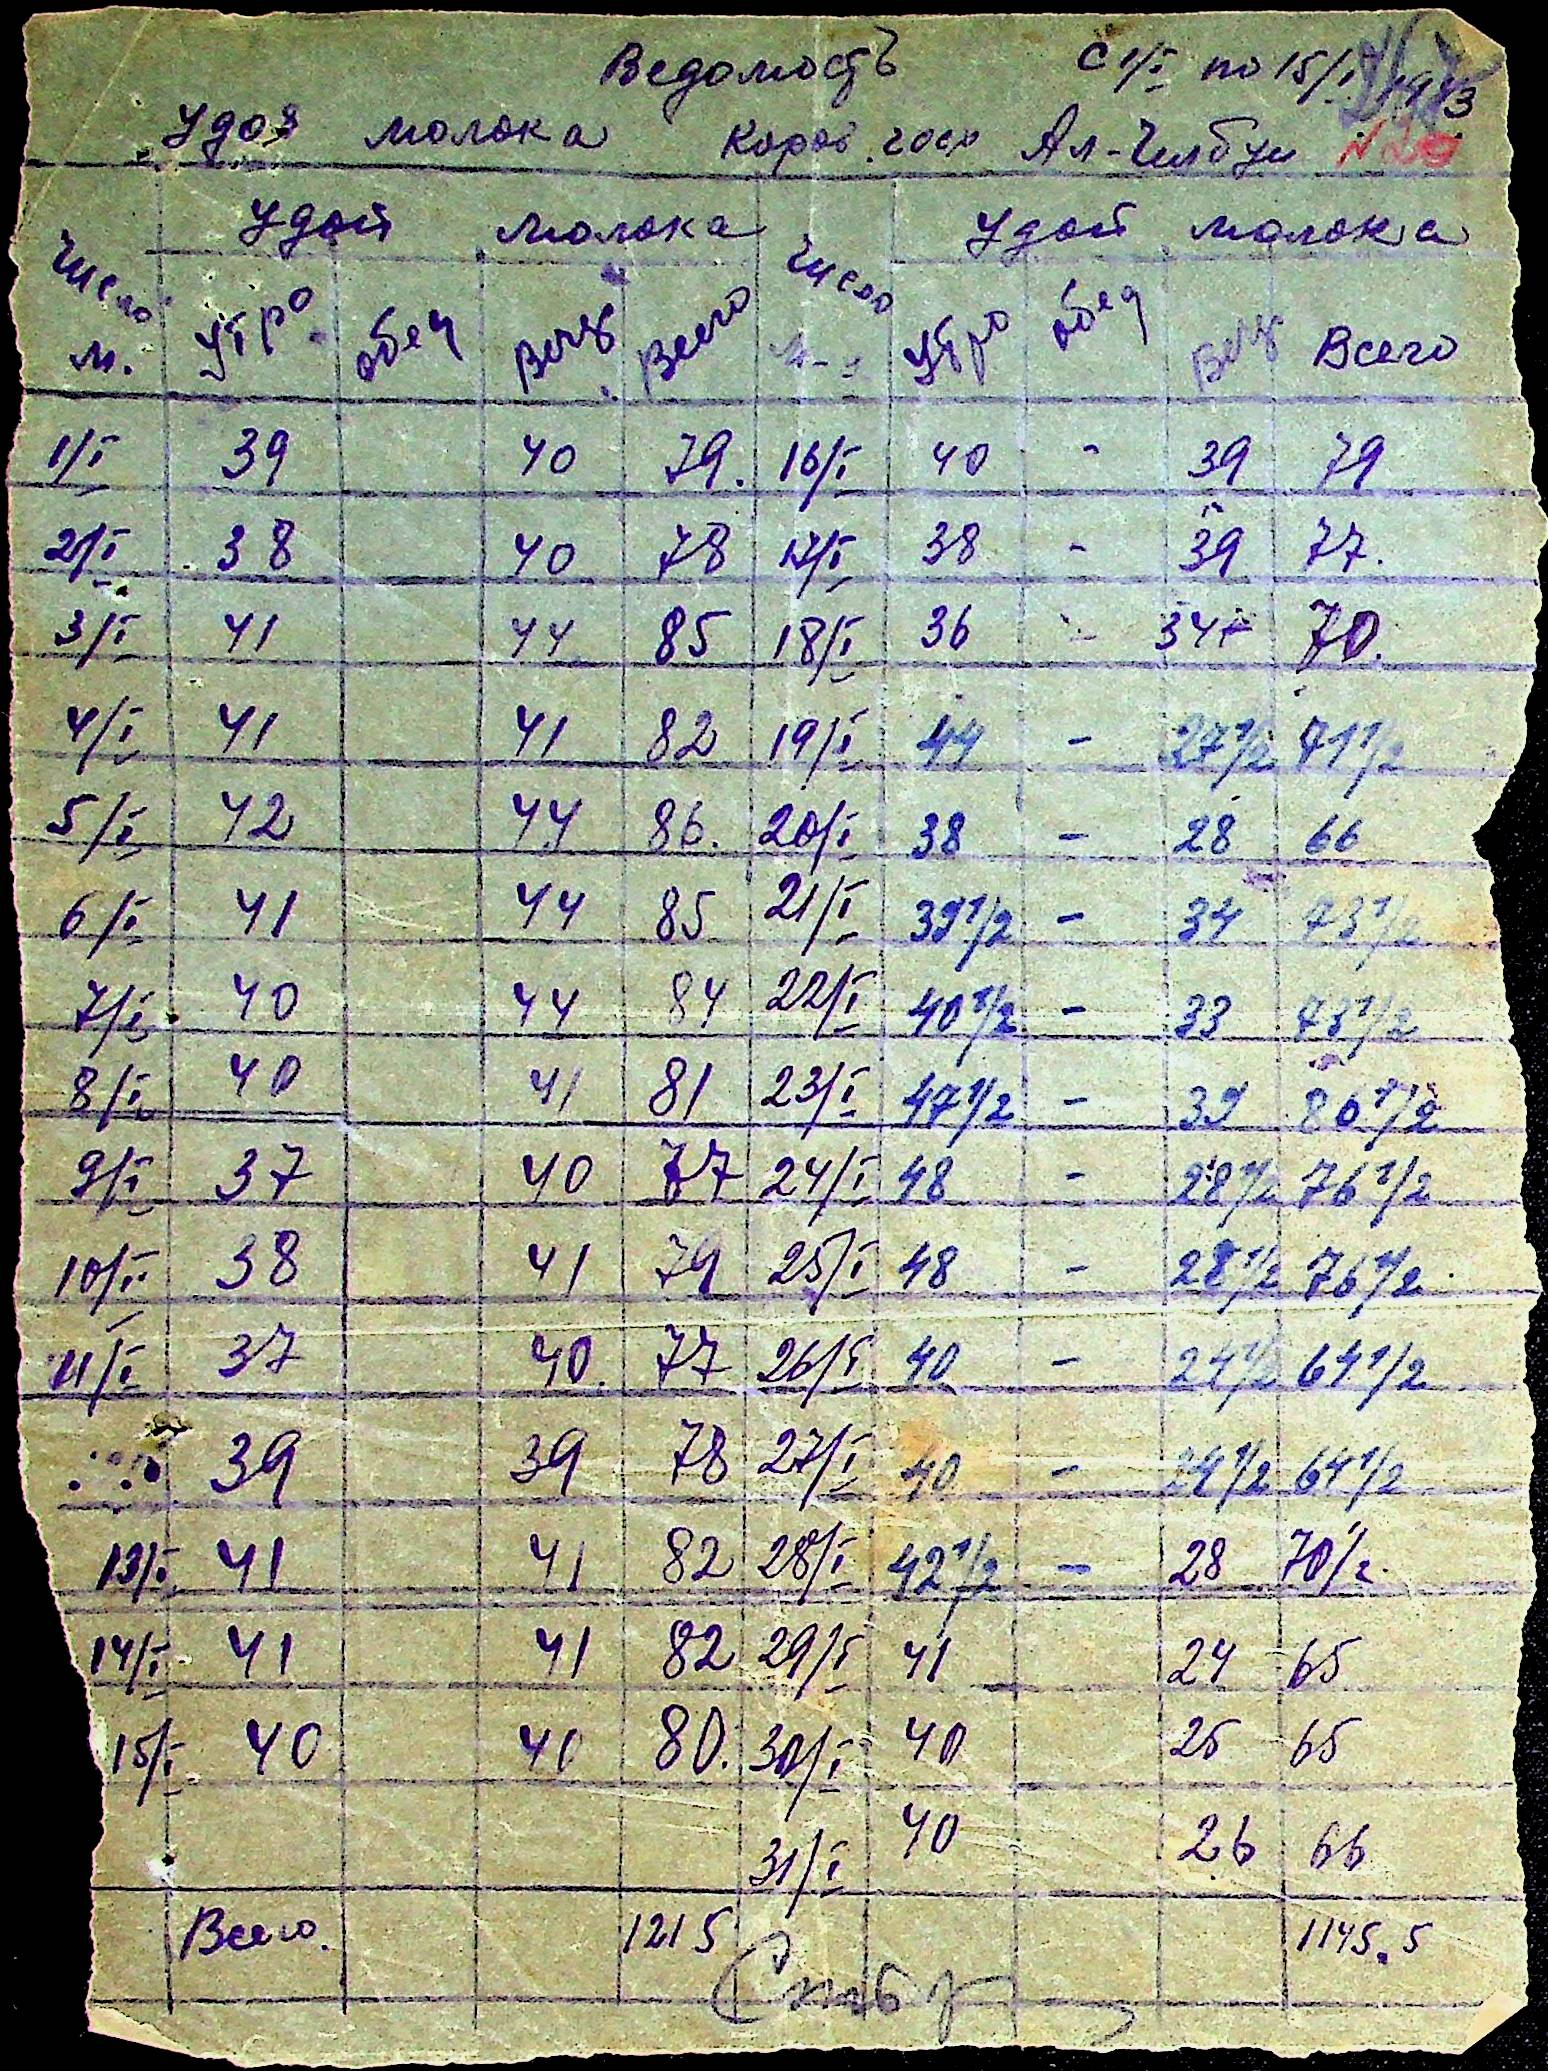 Ведомость С 1/I по 15/I 1943
Удоя молока Коров. госп Ал-Чилбуи N20
Число м. Удой молока Число Удой молока
Утро обед Веч Всего Утро обед Веч Всего
1/I 39 40 79. 16/I 40 - 39 79
2/I 38 40 78 17/I 38 - 39 77.
3/I 41 44 85 18/I 36 - 34 70.
4/I 41 41 82 19/I 44 - 27 1/2 71 1/2
5/I 42 44 86. 20/I 38 - 28 66
6/I 41 44 85 21/I 39 1/2 - 34 73 1/2
7/I 40 44 84 22/I 40 1/2 - 33 73 1/2
8/I 40 41 81 23/I 47 1/2 - 39 86 1/2
9/I 37 40 77 24/I 48 - 28 1/2 76 1/2
10/I 38 41 79 25/I 48 - 28 1/2 76 1/2
11/I 37 40. 77 26/I 40 - 24 1/2 64 1/2
39 39 78 27/I 40 - 24 1/2 64 1/2
13/I 41 41 82 28/I 42 1/2 - 28 70 1/2.
14/I 41 41 82 29/I 41 24 65
15/I 40 40 80. 30/I 40 25 65
31/I 40 26 66
Всего. 1215 1145.5